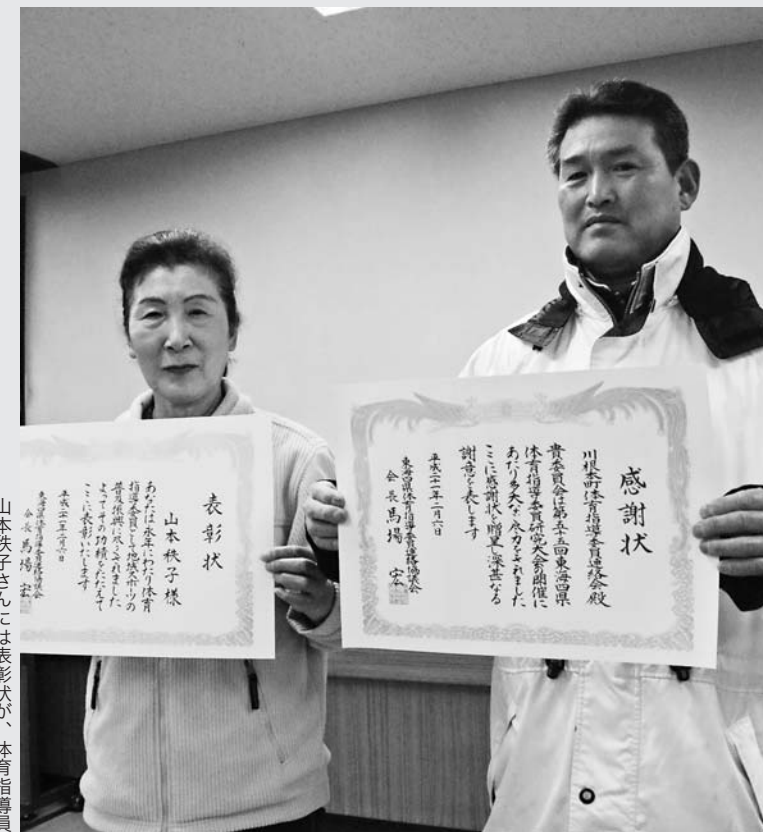 感謝状
川根本町体育指導委員連絡会殿
貴委員会は第五十五回東海四県
体育指導委員研究大会の開催に
あたり多大な尽力をされました
ここに感謝状を贈呈し深甚なる
謝意を表します
平成二十一年二月六日
東海四県体育指導委員連絡協議会
会長馬場宏
表彰状
山本秩子様
あなたは永年にわたり体育
指導委員として地域スポーツの
普及振興に尽くされました
よってその功績をたたえて
ここに表彰いたします
平成二十一年二月六日
東海四県体育指導委員連絡協議会
会長馬場宏
山本秩子さんには表彰状が、体育指導員